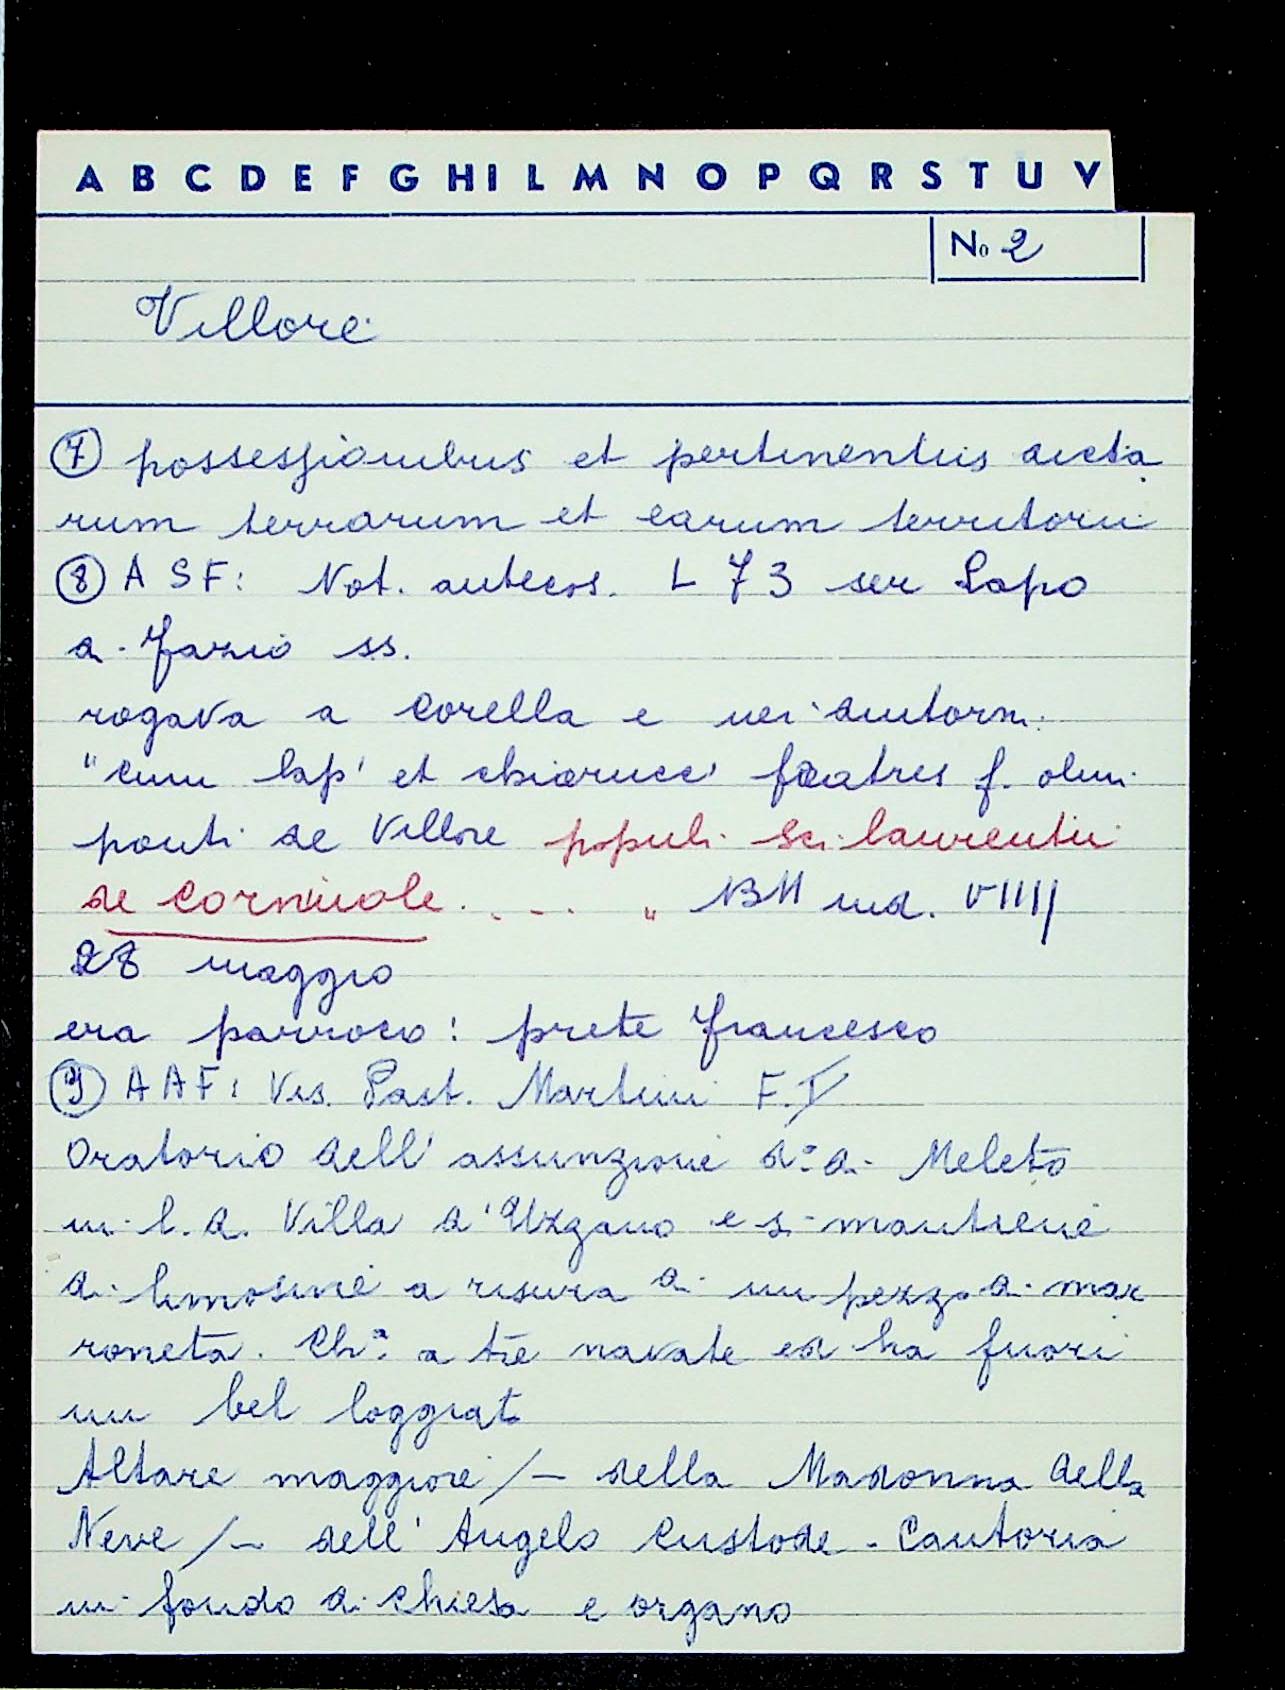 A B C D E F G H I L M N O P Q R S T U V
No 2
Villore
⑦ possessionibus et pertinentiis dicta
rum terrarum et earum territorii
⑧ A S F: Not. antecos. L 73 ser Lapo
di Fazio ss.
rogava a Corella e nei dintorni
"cum lap' et chiarucci fratres f. olim
ponti de Villore populi Sci laurentii
de Corniuole. . - . " ind. VIIII
28 maggio
era parroco: prete Francesco
⑨ A A F: Vis. Past. Martini F. V
Oratorio dell' assunzione d.° di Meleto
in l. d. Villa d'Uzzano e si mantiene
di limosine a risura di un pezzo di mar
roneta. Ch.ª a tre navate ed ha fuori
un bel loggiato
Altare maggiore /- della Madonna della
Neve /- dell' Angelo Custode - Cantoria
in fondo di chiesa e organo